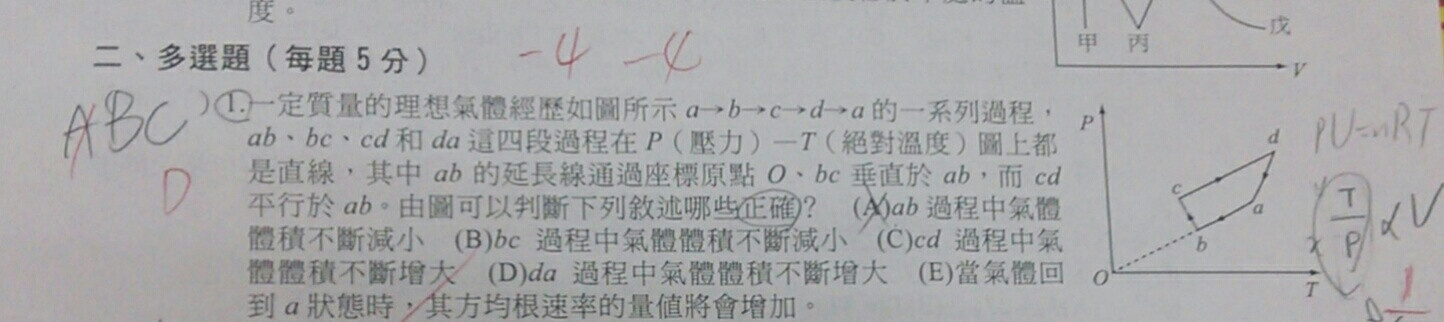 度。
甲 丙 戊
V
二、多選題（每題 5 分） -4 -4
ABC )1.一定質量的理想氣體經歷如圖所示 a→b→c→d→a 的一系列過程，
ab、bc、cd 和 da 這四段過程在 P（壓力）—T（絕對溫度）圖上都
是直線，其中 ab 的延長線通過座標原點 O、bc 垂直於 ab，而 cd
D
平行於 ab。由圖可以判斷下列敘述哪些正確？ (A)ab 過程中氣體
體積不斷減小 (B)bc 過程中氣體體積不斷減小 (C)cd 過程中氣
體體積不斷增大 (D)da 過程中氣體體積不斷增大 (E)當氣體回
到 a 狀態時，其方均根速率的量值將會增加。
P
d
c
a
b
O
T
PV=nRT
T/P ∝ V